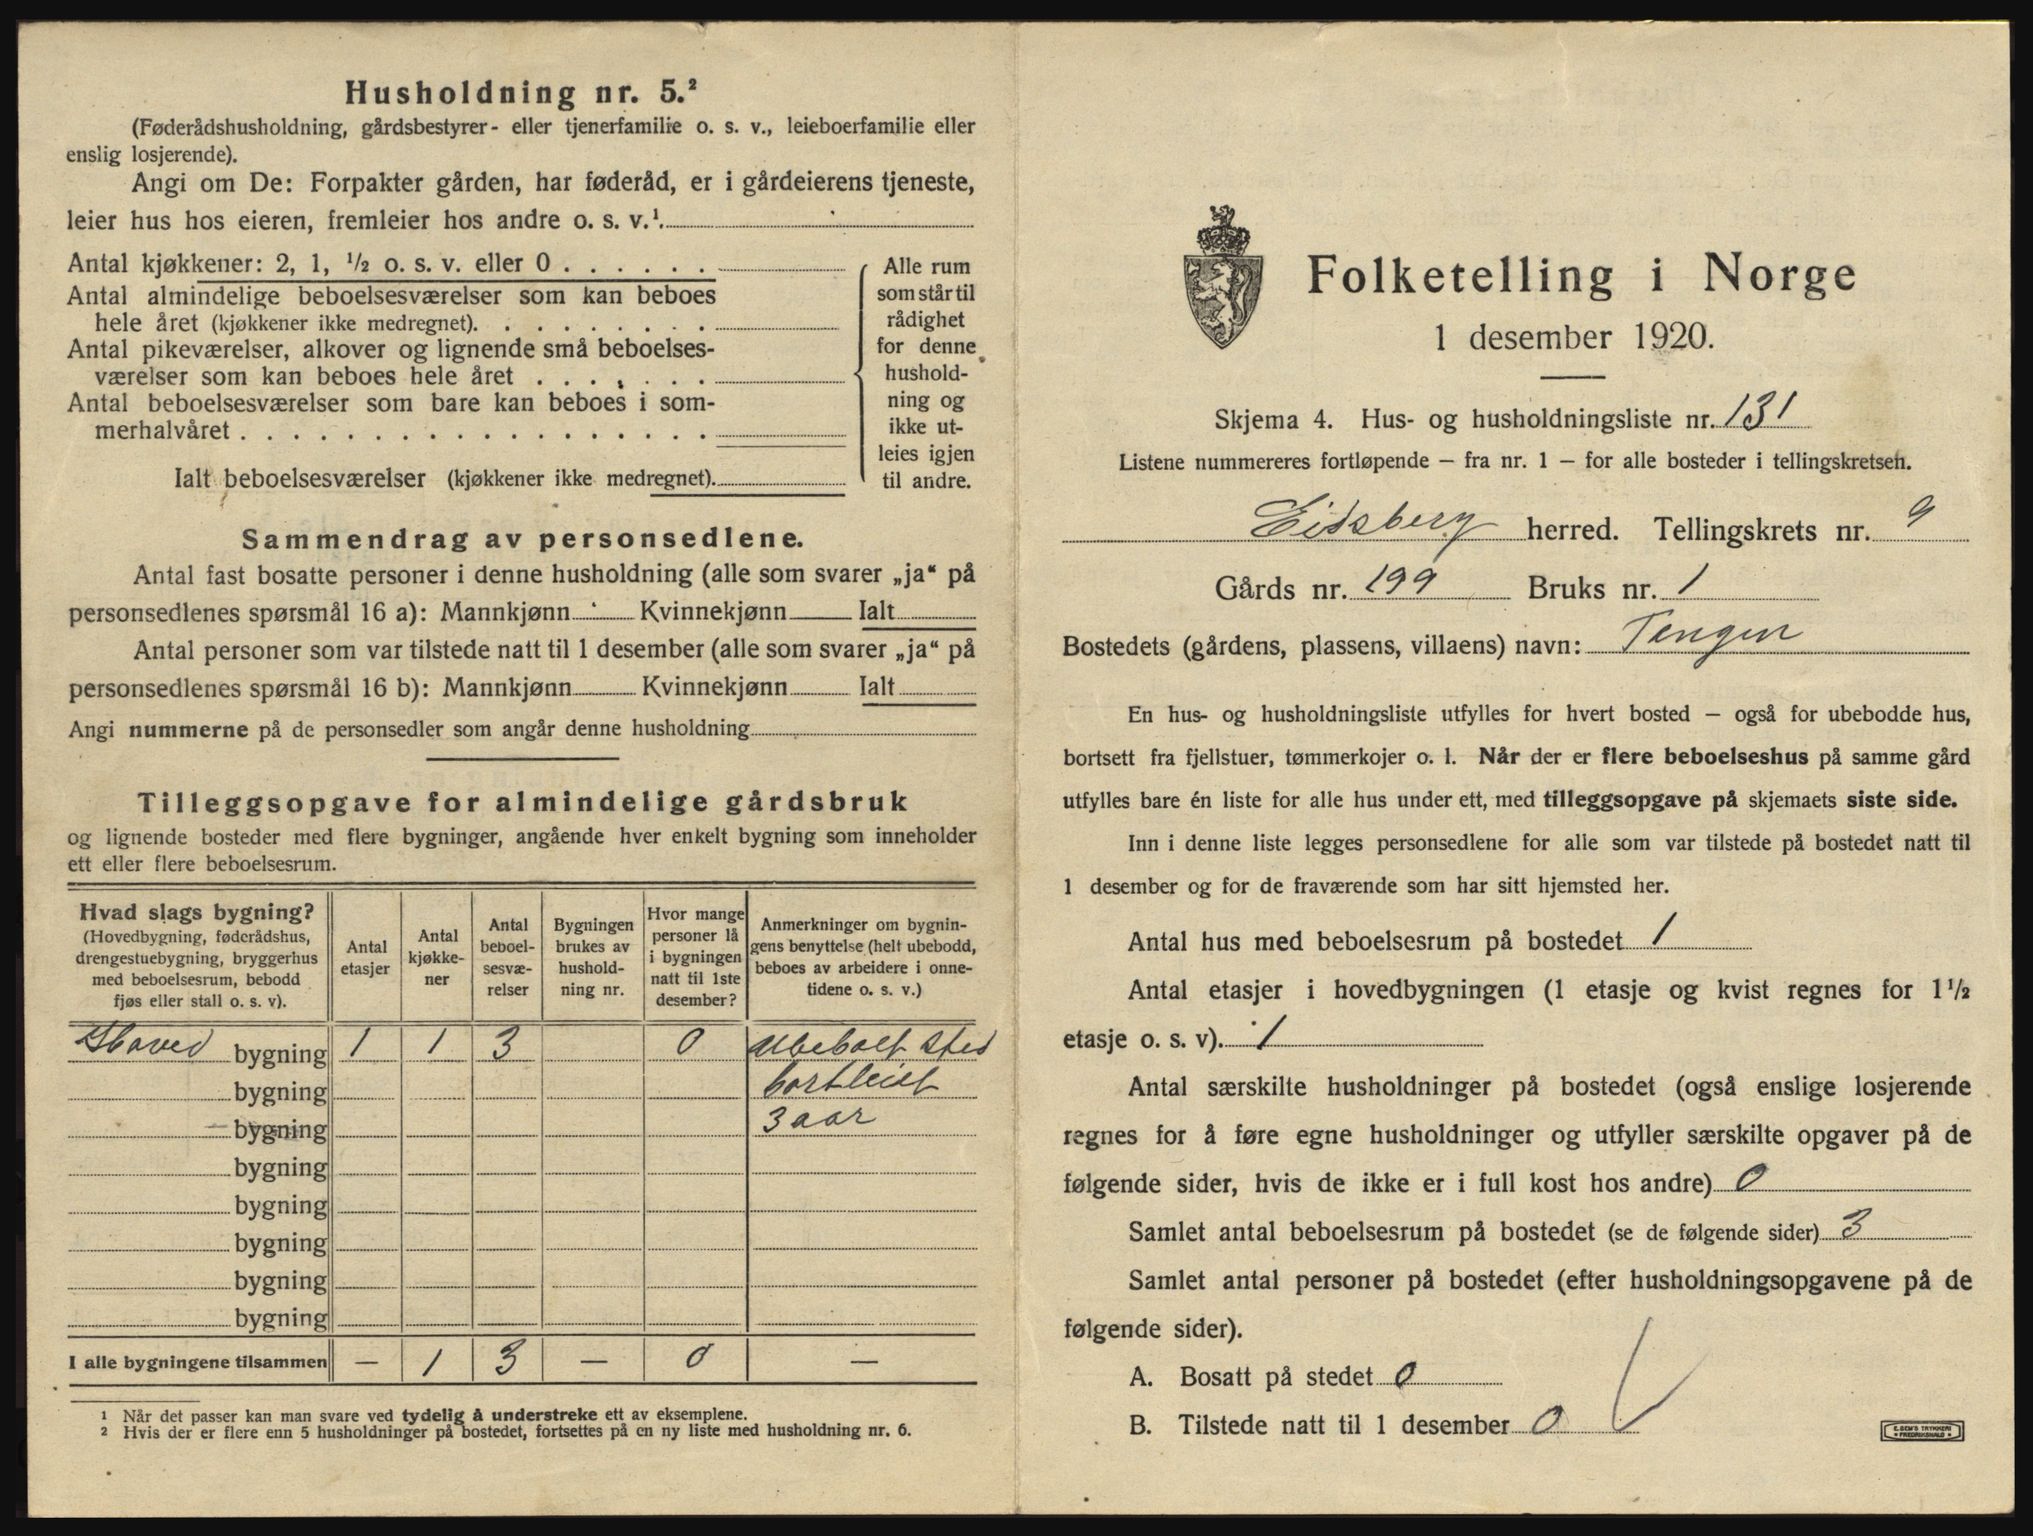 Husholdning nr. 5.²
(Føderådshusholdning, gårdsbestyrer- eller tjenerfamilie o. s. v., leieboerfamilie eller
enslig losjerende).
Angi om De: Forpakter gården, har føderåd, er i gårdeierens tjeneste,
leier hus hos eieren, fremleier hos andre o. s. v.¹.
Antal kjøkkener: 2, 1, ½ o. s. v. eller 0 . . . . . .
Antal almindelige beboelsesværelser som kan beboes
hele året (kjøkkener ikke medregnet). . . . . . . . .
Antal pikeværelser, alkover og lignende små beboelses-
værelser som kan beboes hele året . . . . . . .
Antal beboelsesværelser som bare kan beboes i som-
merhalvåret . . . . . . . . . . . . . . . . . .
Ialt beboelsesværelser (kjøkkener ikke medregnet).
Alle rum
som står til
rådighet
for denne
hushold-
ning og
ikke ut-
leies igjen
til andre.
Sammendrag av personsedlene.
Antal fast bosatte personer i denne husholdning (alle som svarer „ja“ på
personsedlenes spørsmål 16 a): Mannkjønn Kvinnekjønn Ialt
Antal personer som var tilstede natt til 1 desember (alle som svarer „ja“ på
personsedlenes spørsmål 16 b): Mannkjønn Kvinnekjønn Ialt
Angi nummerne på de personsedler som angår denne husholdning
Tilleggsopgave for almindelige gårdsbruk
og lignende bosteder med flere bygninger, angående hver enkelt bygning som inneholder
ett eller flere beboelsesrum.
Hvad slags bygning?
(Hovedbygning, føderådshus,
drengestuebygning, bryggerhus
med beboelsesrum, bebodd
fjøs eller stall o. s. v).
Antal
etasjer
Antal
kjøkke-
ner
Antal
beboel-
sesvæ-
relser
Bygningen
brukes av
hushold-
ning nr.
Hvor mange
personer lå
i bygningen
natt til 1ste
desember?
Anmerkninger om bygnin-
gens benyttelse (helt ubebodd,
beboes av arbeidere i onne-
tidene o. s. v.)
Hoved bygning 1 1 3 0 Ubeboet sted
bygning bortleiet
bygning 3 aar
bygning
bygning
bygning
bygning
bygning
I alle bygningene tilsammen — 1 3 — 0 —
¹ Når det passer kan man svare ved tydelig å understreke ett av eksemplene.
² Hvis der er flere enn 5 husholdninger på bostedet, fortsettes på en ny liste med husholdning nr. 6.
Folketelling i Norge
1 desember 1920.
Skjema 4. Hus- og husholdningsliste nr. 131
Listene nummereres fortløpende — fra nr. 1 — for alle bosteder i tellingskretsen.
Eidsberg herred. Tellingskrets nr. 9
Gårds nr. 199 Bruks nr. 1
Bostedets (gårdens, plassens, villaens) navn: Tangen
En hus- og husholdningsliste utfylles for hvert bosted — også for ubebodde hus,
bortsett fra fjellstuer, tømmerkojer o. l. Når der er flere beboelseshus på samme gård
utfylles bare én liste for alle hus under ett, med tilleggsopgave på skjemaets siste side.
Inn i denne liste legges personsedlene for alle som var tilstede på bostedet natt til
1 desember og for de fraværende som har sitt hjemsted her.
Antal hus med beboelsesrum på bostedet 1
Antal etasjer i hovedbygningen (1 etasje og kvist regnes for 1½
etasje o. s. v). 1
Antal særskilte husholdninger på bostedet (også enslige losjerende
regnes for å føre egne husholdninger og utfyller særskilte opgaver på de
følgende sider, hvis de ikke er i full kost hos andre) 0
Samlet antal beboelsesrum på bostedet (se de følgende sider) 3
Samlet antal personer på bostedet (efter husholdningsopgavene på de
følgende sider).
A. Bosatt på stedet 0
B. Tilstede natt til 1 desember 0
E. SEM'S TRYKKERI
FREDRIKSHALD